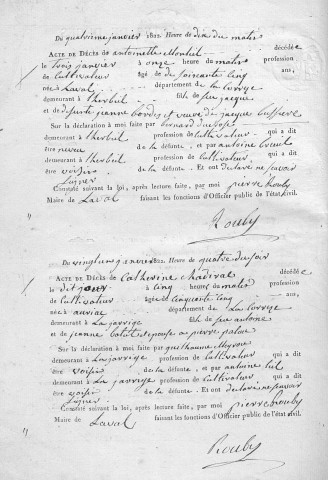 Du quatrieme janvier 1822. Heure de dix du matin
Acte de Décès de antoinette décédée
le trois janvier à onze heure du matin profession
de Cultivateur âgé de soixante cinq ans,
née à Laval département de la Corrèze
demeurant à therbeil fille de feu jacques
et de jeanne bordes et veuve de jacque
Sur la déclaration à moi faite par bernard
demeurant à therbeil profession de Cultivateur qui a dit
être neveu de la défunte, et par antoine
demeurant à therbeil profession de cultivateur qui a dit
être voisin de la défunte. Et ont déclaré ne savoir
signer
Constaté suivant la loi, après lecture faite, par moi pierre Rouby
Maire de Laval faisant les fonctions d'Officier public de l'état civil.
Rouby
Du vingt une janvier 1822. Heure de quatre du soir
Acte de Décès de Catherine décédée
le dit jour à cinq heure du matin profession
de Cultivateur âgée de cinquante cinq ans,
née à département de La Corrèze
demeurant à La jarrige fille de feu antoine
et de jeanne épouse a pierre
Sur la déclaration à moi faite par guilhaume
demeurant à La jarrige profession de Cultivateur qui a dit
être voisin de la défunte. et par antoine
demeurant à La jarrige profession de Cultivateur qui a dit
être voisin de la défunte. Et ont déclaré ne savoir
signer
Constaté suivant la loi, après lecture faite, par moi pierre Rouby
Maire de Laval faisant les fonctions d'Officier public de l'état civil.
Rouby